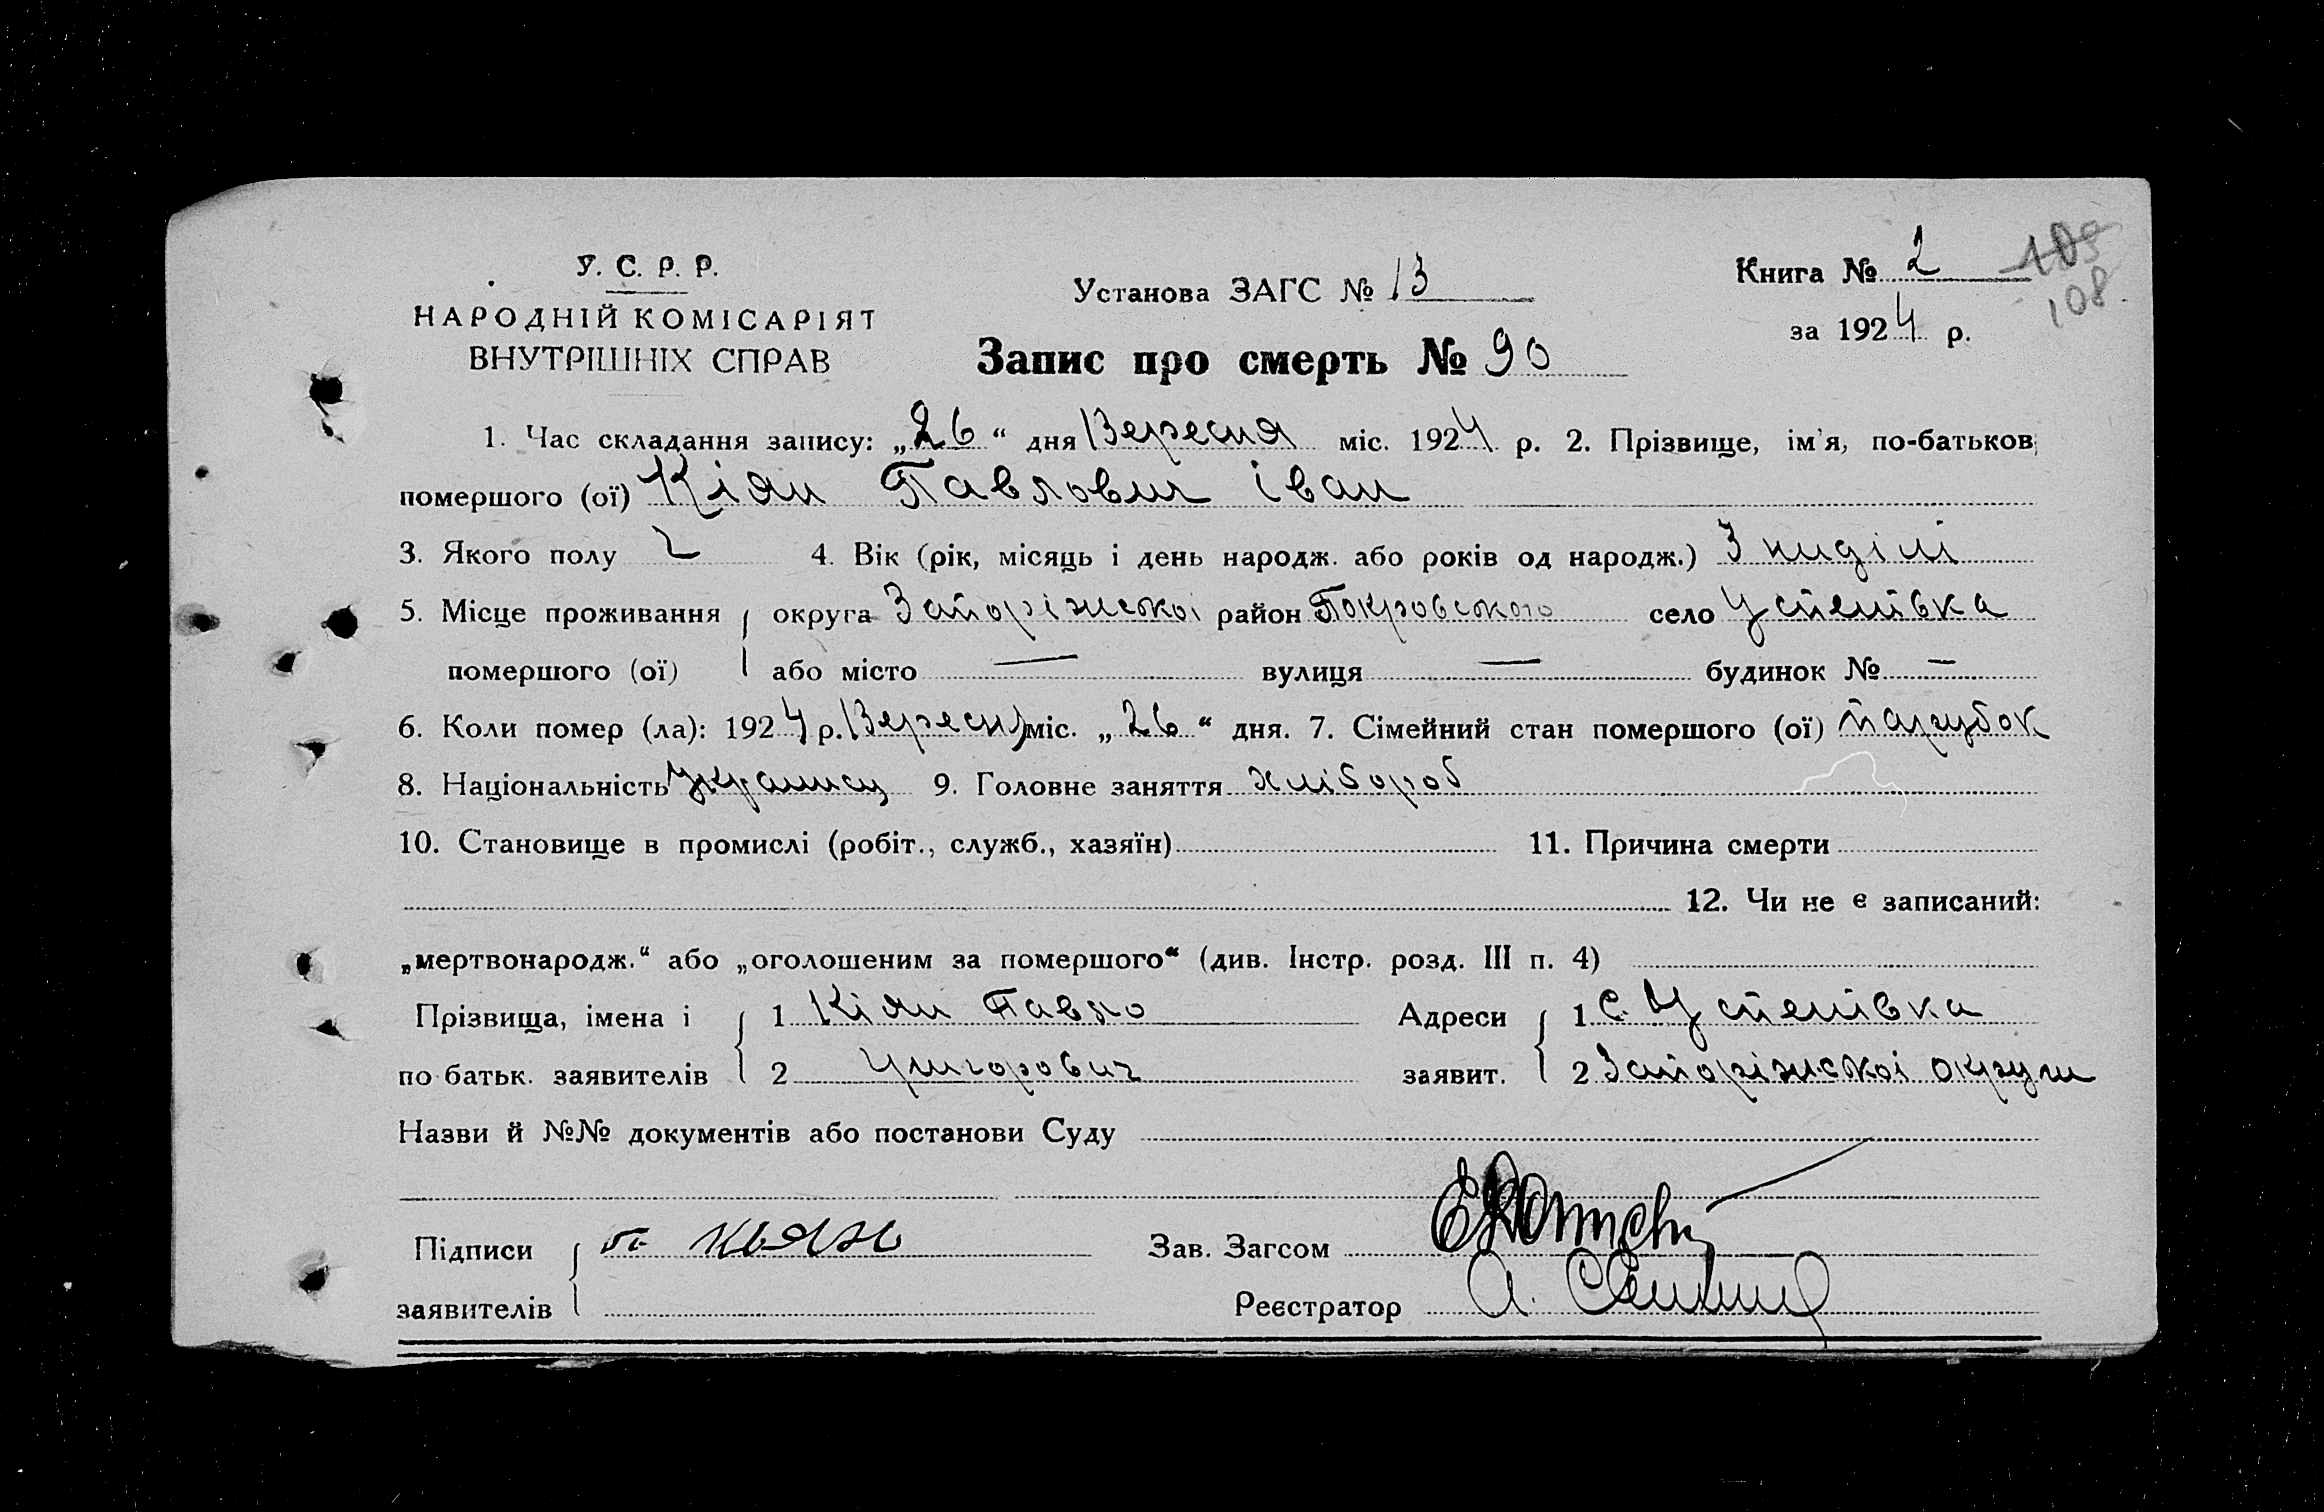 У. С. Р. Р.
НАРОДНІЙ КОМІСАРІЯТ
ВНУТРІШНІХ СПРАВ
Установа ЗАГС № 13
Запис про смерть № 90
Книга № 2
105
108
за 1924 р.
1. Час складання запису: „26“ дня Вересня міс. 1924 р. 2. Прізвище, ім'я, по-батькові
помершого (ої) Кіян Павлович Іван
3. Якого полу ч 4. Вік (рік, місяць і день народж. або років од народж.) 3 ниділі
5. Місце проживання округа Запоріжськоі район Покровського село Успенівка
помершого (ої) або місто — вулиця — будинок № —
6. Коли помер (ла): 1924 р. Вересня міс. „26“ дня. 7. Сімейний стан помершого (ої) парубок
8. Національність 9. Головне заняття хлібороб
10. Становище в промислі (робіт., служб., хазяїн) 11. Причина смерти
12. Чи не є записаний:
„мертвонародж.“ або „оголошеним за помершого“ (див. Інстр. розд. III п. 4)
Прізвища, імена і 1 Кіян Павло Адреси 1 с. Успенівка
по батьк. заявителів 2 Григорович заявит. 2 Запоріжськоі округи
Назви й №№ документів або постанови Суду
Підписи Зав. Загсом
заявителів Реєстратор А.